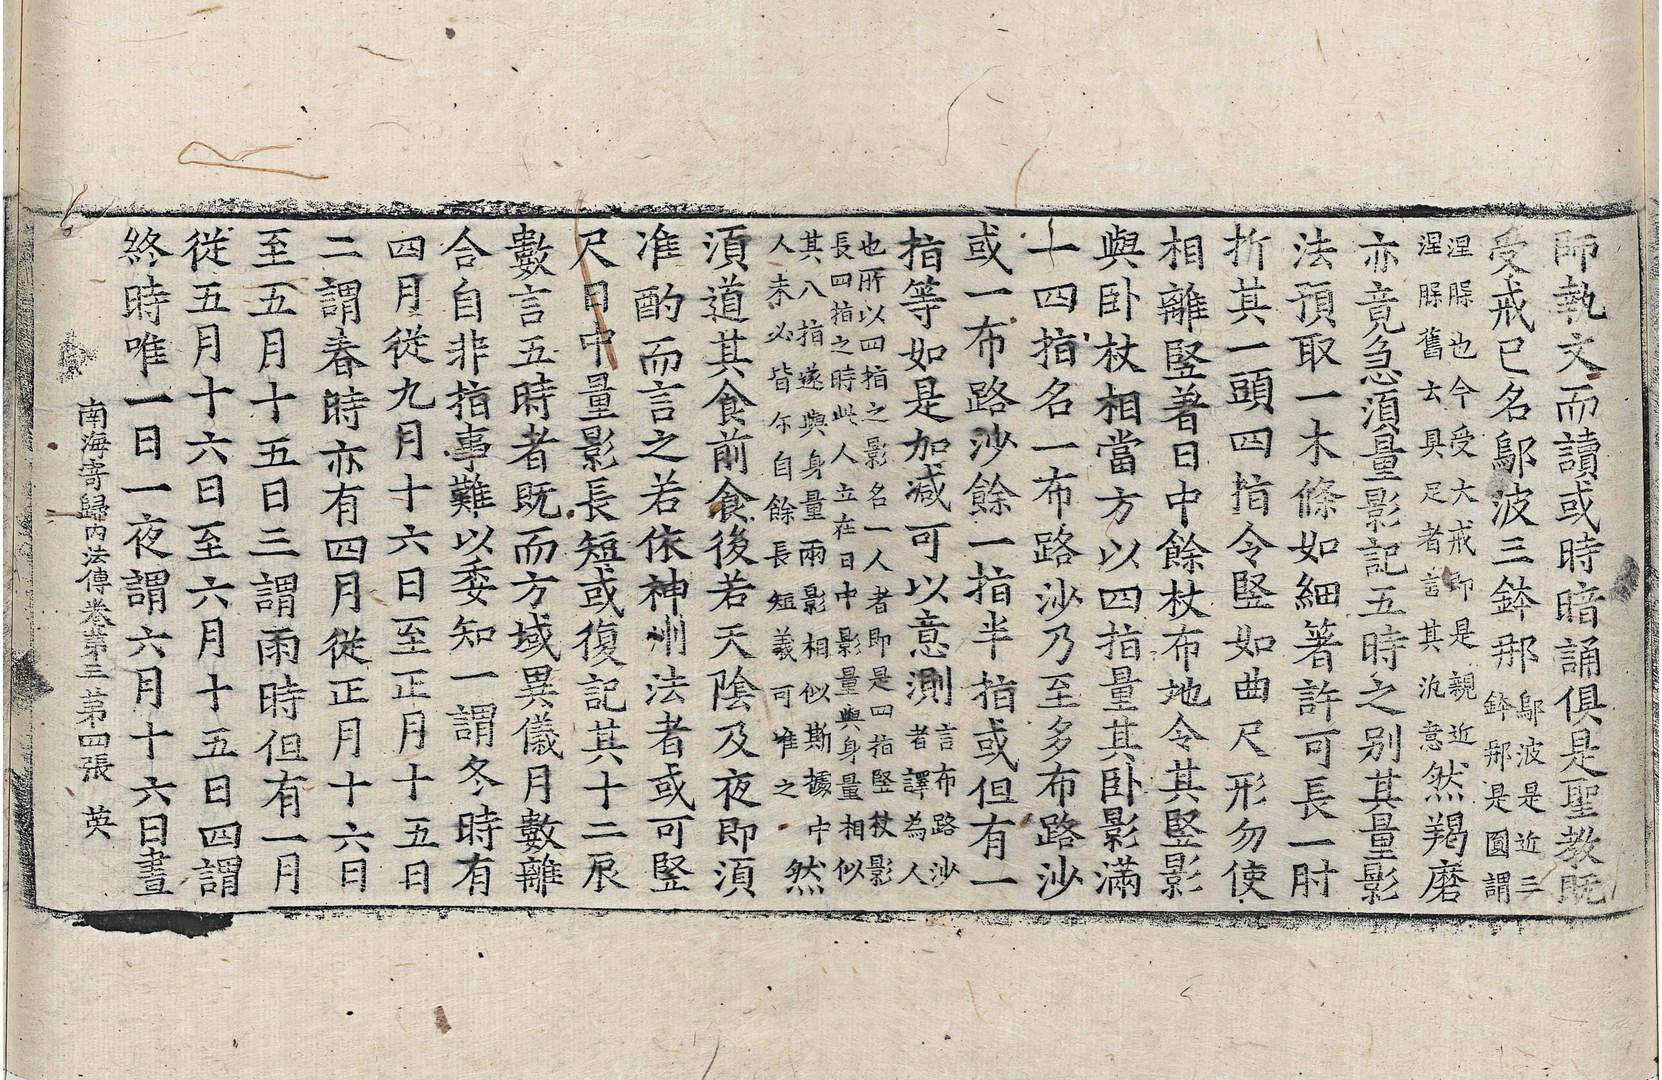 師執文而讀或時暗誦俱是聖教既
受戒已名鄔波三鉢那鄔波是近三鉢那是圓謂
涅脲也今受大戒即是親近涅脲舊云具足者言其汎意然羯磨
亦竟急須量影記五時之別其量影
法預取一木條如細箸許可長一肘
折其一頭四指令竪如曲尺形勿使
相離竪著日中餘杖布地令其竪影
與卧杖相當方以四指量其卧影滿
一四指名一布路沙乃至多布路沙
或一布路沙餘一指半指或但有一
指等如是加減可以意測言布路沙者譯為人
也所以四指之影名一人者即是四指竪杖影長四指之時此人立在日中影量與身量相似
其八指遂與身量兩影相似斯據中人未必皆尒自餘長短義可准之然
須道其食前食後若天陰及夜即須
准酌而言之若依神州法者或可竪
尺日中量影長短或復記其十二辰
數言五時者既而方域異儀月數離
合自非指事難以委知一謂冬時有
四月從九月十六日至正月十五日
二謂春時亦有四月從正月十六日
至五月十五日三謂雨時但有一月
從五月十六日至六月十五日四謂
終時唯一日一夜謂六月十六日晝
南海寄歸內法傳卷第三 第四張 英